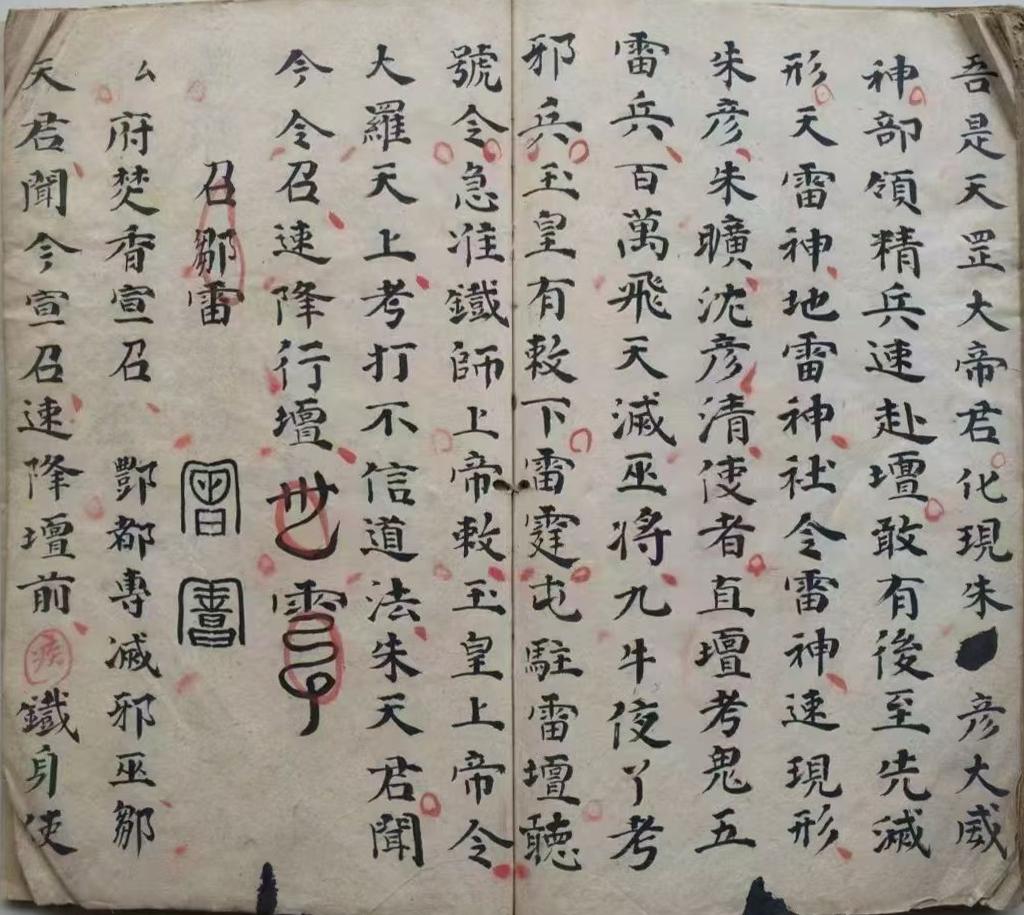 吾是天罡大帝君化現朱彦大威
神部領精兵速赴壇敢有後至先滅
形天雷神地雷神社令雷神速現形
朱彦朱曠沈彦清使者直壇考鬼五
雷兵百萬飛天滅巫將九牛夜丫考
邪兵玉皇有敕下雷霆屯駐雷壇聽
號令急准鐵師上帝敕玉皇上帝令
大羅天上考打不信道法朱天君聞
今令召速降行壇
召鄒雷
厶府焚香宣召 酆都專滅邪巫鄒
天君聞今宣召速降壇前 疾 鐵身使